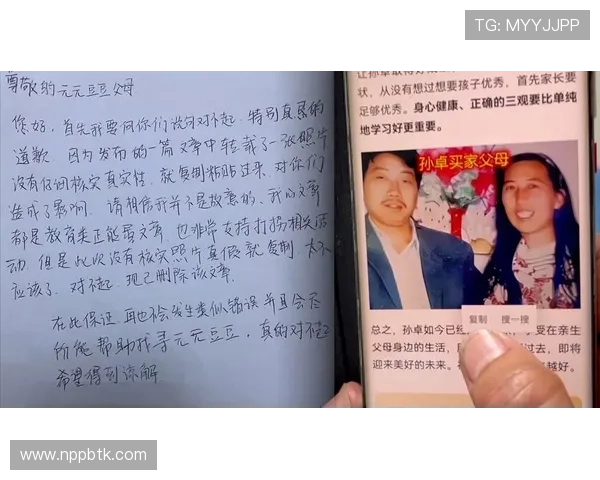 TG: MYYJJPP
尊敬的元元豆豆父母
您好，首先我要向你们说句对不起，特别真恳的
道歉，因为发布的一篇文章中转载了一张照片
没有仔细核实真实性，就复制粘贴过来，对你们
造成了影响，请相信我并不是故意的，我的文章
都是教育类正能量文章，也非常支持打拐相关活
动，但是此次没有核实照片真假就复制，太不
应该了，对不起，现已删除该文章。
在此保证，再也不会发生类似错误并且会尽
所能帮助找寻元元豆豆，真的对不起
希望得到谅解
让孙卓取得好成
状，从没有想过想要孩子优秀，首先家长要
足够优秀。身心健康、正确的三观要比单纯
地学习好更重要。
孙卓买家父母
复制 搜一搜
总之，孙卓如今已经 受在亲生
父母身边的生活， 过去，即将
迎来美好的未来。 越好。
www.nppbtk.com